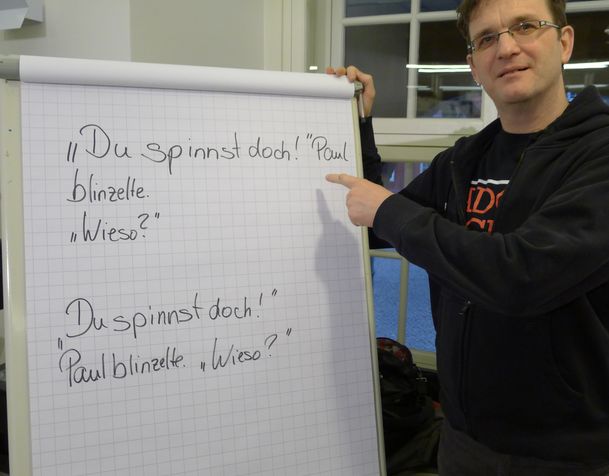 „Du spinnst doch!" Paul
blinzelte.
„Wieso?"
„Du spinnst doch!"
Paul blinzelte. „Wieso?"